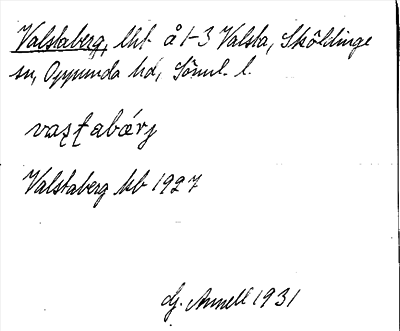 Valstaberg, lht å 1-3 Valsta, Sköldinge
sn, Oppunda hd, Söml. l.
Valstaberg kb 1927
Gj. Annell 1931